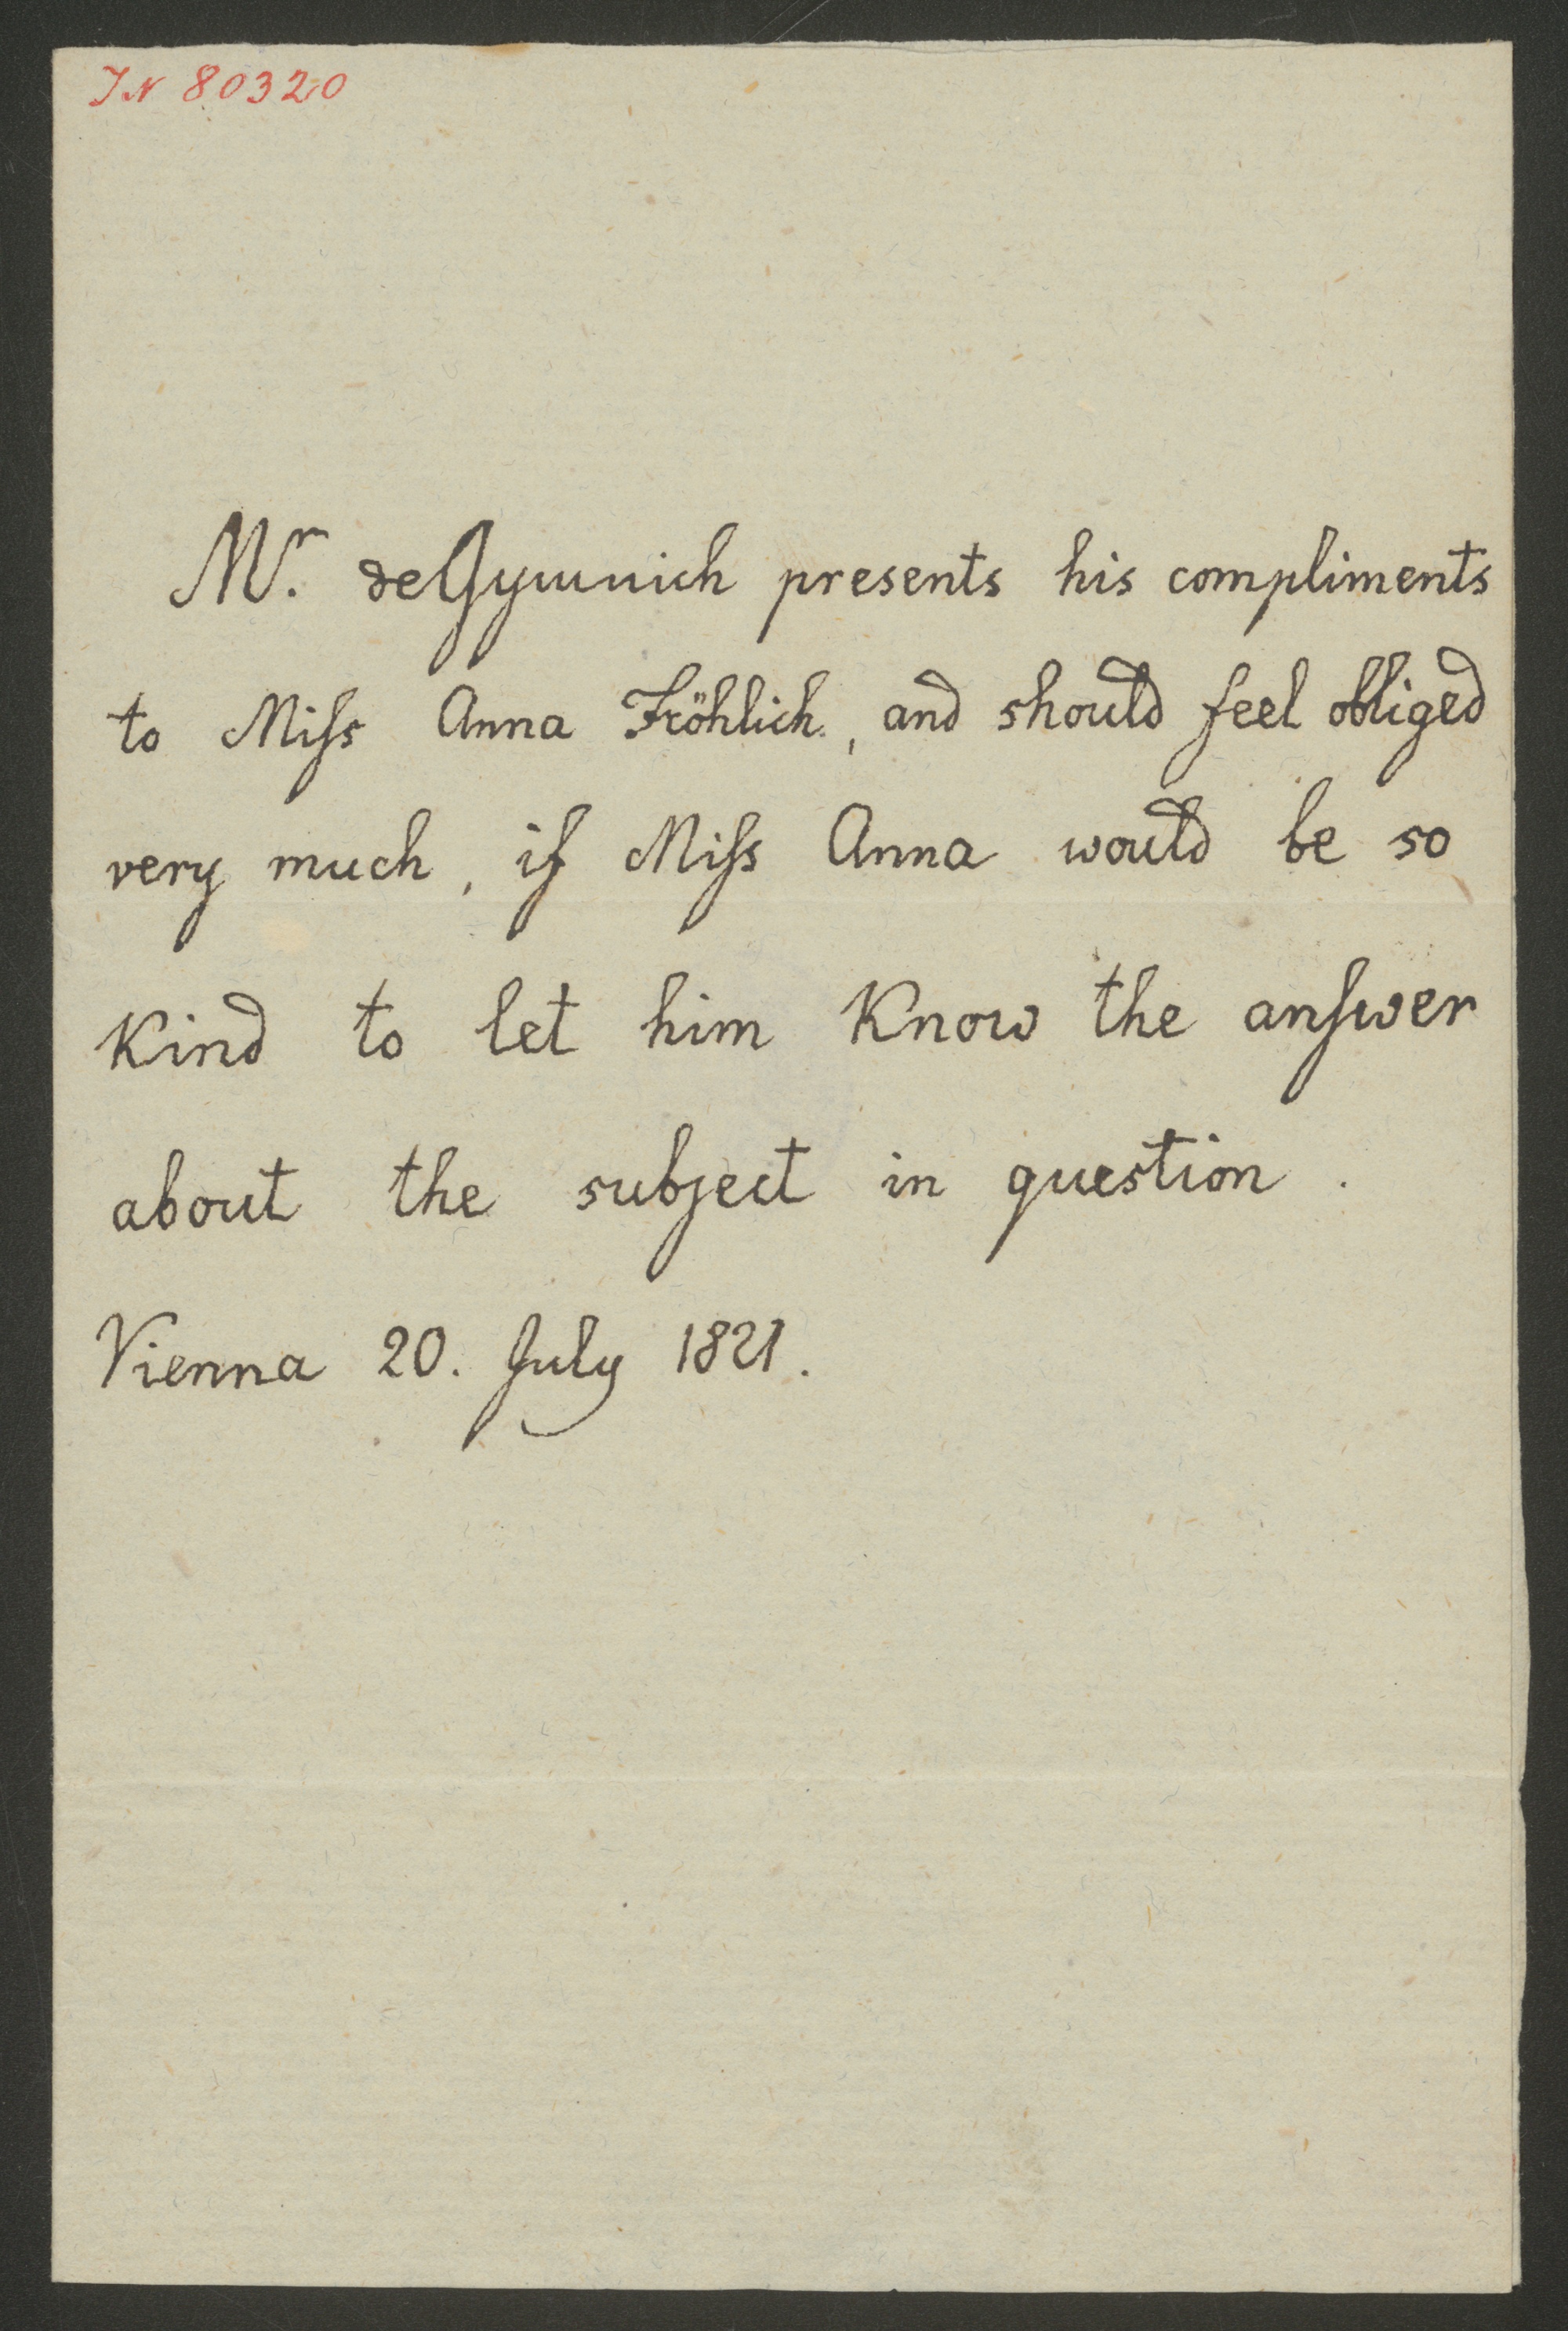 JN 80320
Mr. de Gymnich presents his compliments
to Miſs Anna Fröhlich, and should feel obliged
very much, if Miſs Anna would be so
Kind to let him Know the anſwer
about the subject in question.
Vienna 20. July 1821.